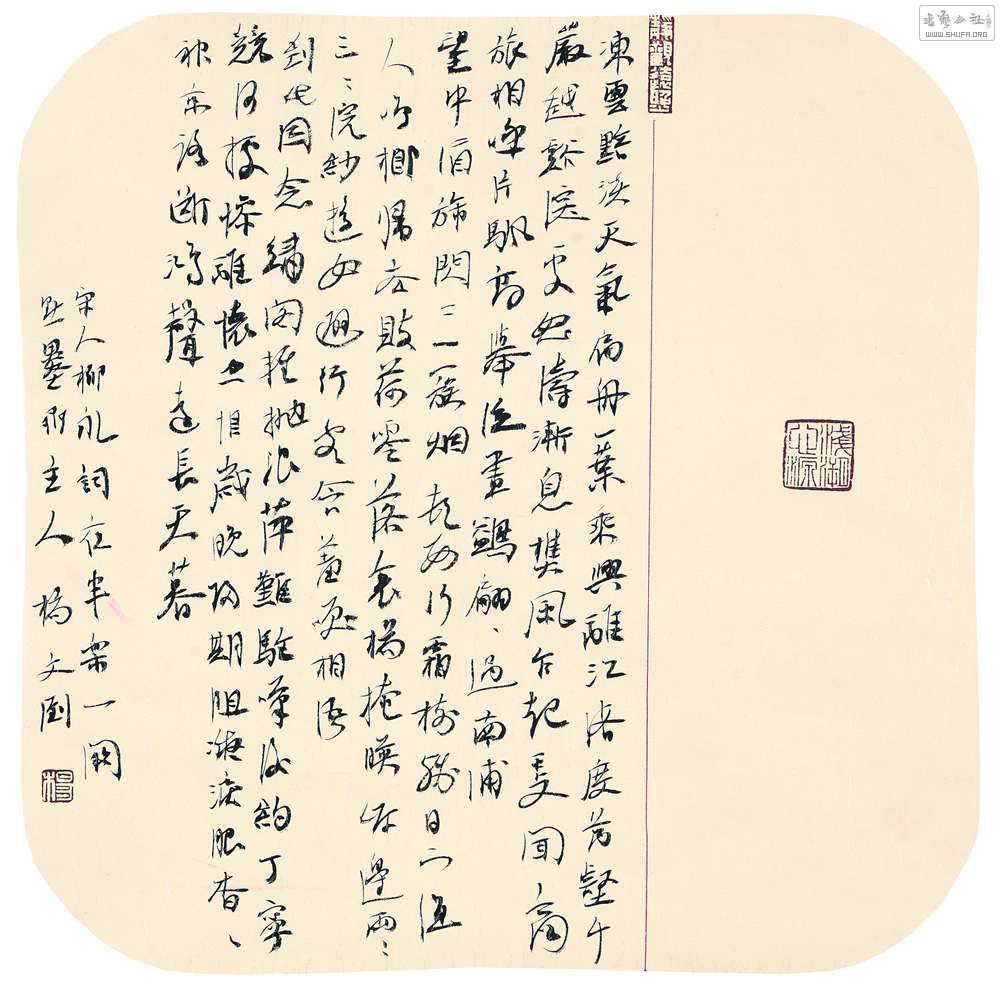 凍雲黯淡天氣扁舟一葉乘興離江渚度萬壑千
巖越谿深處怒濤漸息樵風乍起更聞商
旅相呼片帆高舉泛畫鷁翩〻過南浦
望中酒旆閃〻一簇烟村數行霜樹殘日下漁
人鳴榔歸去敗荷零落衰楊掩映岸邊兩〻
三〻浣紗遊女避行客含羞笑相語
到此因念繡閣輕拋浪萍難駐嘆後約丁寧
競何據慘離懷空恨歲晚歸期阻凝淚眼杳〻
神京路斷鴻聲遠長天暮
宋人柳永詞夜半樂一闋
墨主人楊文
楊
書藝公社
WWW.SHUFA.ORG